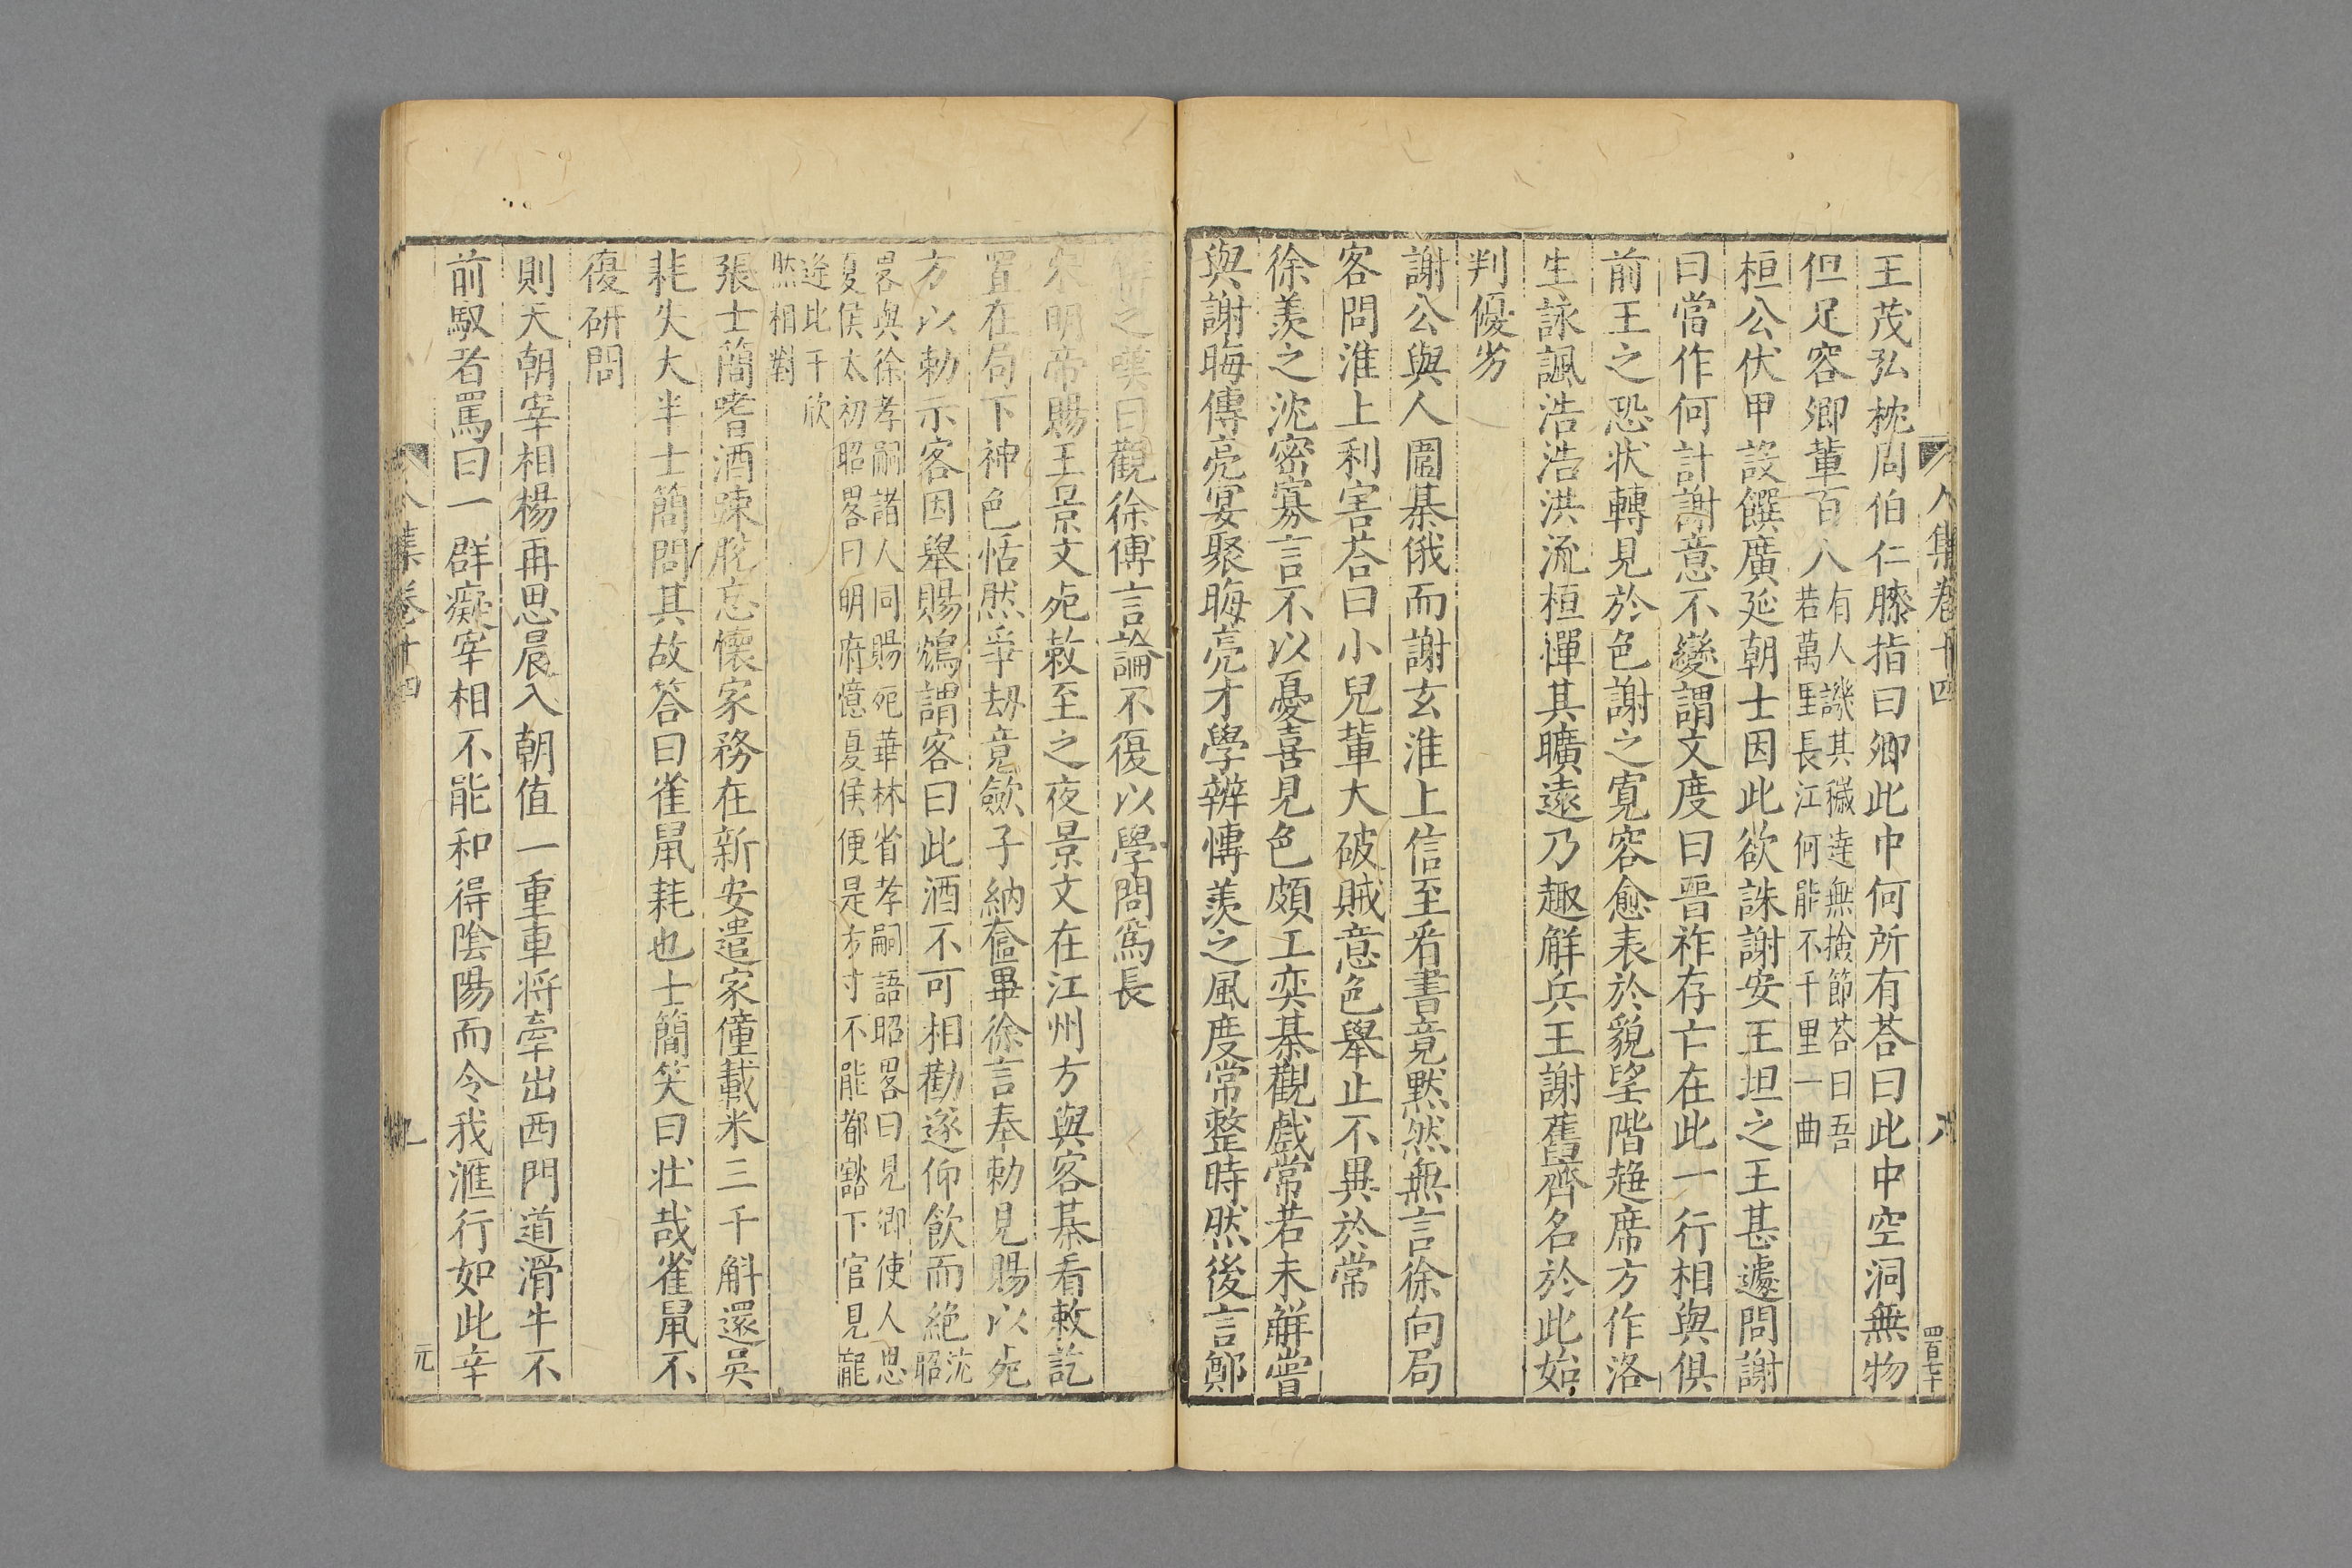 人集卷十四 八 四百七十
王茂弘枕周伯仁膝指曰卿此中何所有荅曰此中空洞無物
但足容卿軰百人有人譏其穢逹無撿節荅曰吾
若萬里長江何能不千里一曲
桓公伏甲設饌廣延朝士因此欲誅謝安王坦之王甚遽問謝
曰當作何計謝意不變謂文度曰晉祚存亡在此一行相與俱
前王之恐状轉見於色謝之寛容愈表於貌望階趨席方作洛
生詠諷浩浩洪流桓憚其曠遠乃趣解兵王謝舊齊名於此始
判優劣
謝公與人圍棊俄而謝玄淮上信至看書竟默然無言徐向局
客問淮上利害荅曰小兒軰大破賊意色舉止不異於常
徐羡之沈密寡言不以憂喜見色頗工奕棊觀戲常若未解嘗
與謝晦傅亮宴聚晦亮才學辨慱羡之風度常整時然後言鄭
之嘆曰觀徐傅言論不復以學問爲長
宋明帝賜王景文死敕至之夜景文在江州方與客棊看敕訖
置在局下神色恬然爭刼竟歛子納奩畢徐言奉勅見賜以死
方以勅示客因舉賜鴆謂客曰此酒不可相勸遂仰飲而絶沈
昭
畧與徐孝嗣諸人同賜死華林省孝嗣語昭畧曰見卿使人思
夏侯太初昭畧曰明府憶夏侯便是方寸不能都豁下官見龍
逄比干欣
然相對
張士簡嗜酒踈脫忘懷家務在新安遣家僮載米三千斛還吳
耗失大半士簡問其故答曰雀鼠耗也士簡笑曰壮哉雀鼠不
復研問
則天朝宰相楊再思晨入朝值一重車将牽出西門道滑牛不
前馭者罵曰一群癡宰相不能和得陰陽而令我滙行如此辛
人集卷十四 九 元